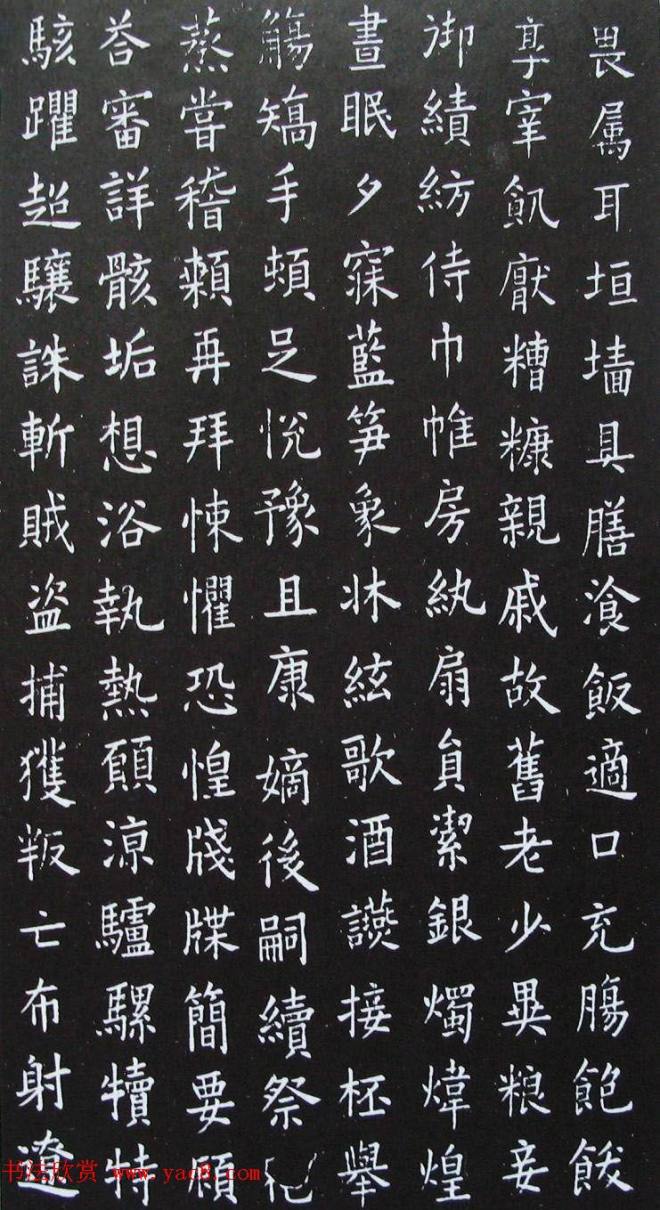 畏属耳垣墙具膳湌飯適口充膓飽飫
享宰飢厭糟糠親戚故舊老少異粮妾
御績紡侍巾帷房紈扇員潔銀燭煒煌
晝眠夕寐藍笋象牀絃歌酒讌接杯舉
觴矯手頓足悅豫且康嫡後嗣續祭祀
蒸甞稽顙再拜悚懼恐惶牋牒簡要顧
荅審詳骸垢想浴執熱願凉驢騾犢特
駭躍超驤誅斬賊盗捕獲叛亡布射遼
书法欣赏 www.yac8.com